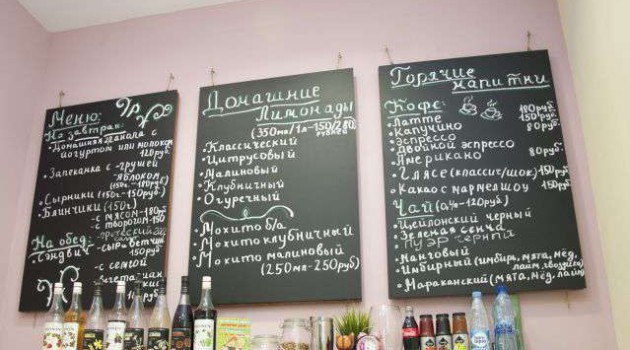 Меню:
На завтрак:
Домашняя гранола с
йогуртом или молоком
120руб.
Запеканка с -грушей
-яблоком
(150г. -180руб)
Сырники (150г-150руб)
Блинчики (150г)
-с мясом-180руб
-с творогом-150
На обед:
Сэндвич
-сыр ветчина
150руб
-с семгой
Домашние
Лимонады
(350мл/1л-150/280
рублей)
Классический
Цитрусовый
Малиновый
Клубничный
Огуречный
Мохито б/а
Мохито клубничный
Мохито малиновый
(250мл-250руб)
Горячие
напитки
Кофе:
Латте 180руб.
Капучино 150руб
Эспрессо 80руб.
Двойной эспрессо
Американо 80руб.
Глясе (классич/шок) 150руб
Какао с маршмеллоу 150руб
Чай (0,4-120руб)
Цейлонский черный
Зеленая сенча
Манговый
Имбирный (имбирь, мята, мёд,
лайм, гвоздика)
Мараканский (мята, мёд,
лайм)